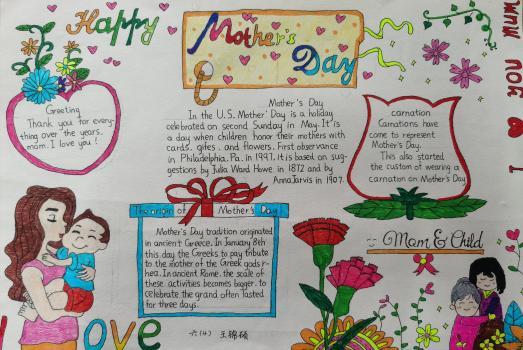 Happy
Mother's
Day
I ♥ YOU MUM
Greeting
Thank you for every-
thing over the years.
mom. I love you!
Mother's Day
In the U.S. Mother' Day is a holiday
celebrated on second Sunday in May. It is
a day when children honor their mothers with
cards. gifes. and flowers. First observance
in Philadelphia, Pa. in 1997, it is based on sug-
gestions by Julia Ward Howe in 1872 and by
Anna Jarvis in 1907.
carnation
Carnations have
come to represent
Mother's Day.
This also started
the custom of wearing a
carnation on Mother's Day
The origin of Mother's Day
Mother's Day tradition originated
in ancient Greece. In January 8th
this day the Greeks to pay tribute
to the mother of the Greek gods r-
hea. In ancient Rome. the scale of
these activities becomes bigger. to
celebrate the grand often lasted
for three days.
Mom & Child
Love
六(4) 王锦硕